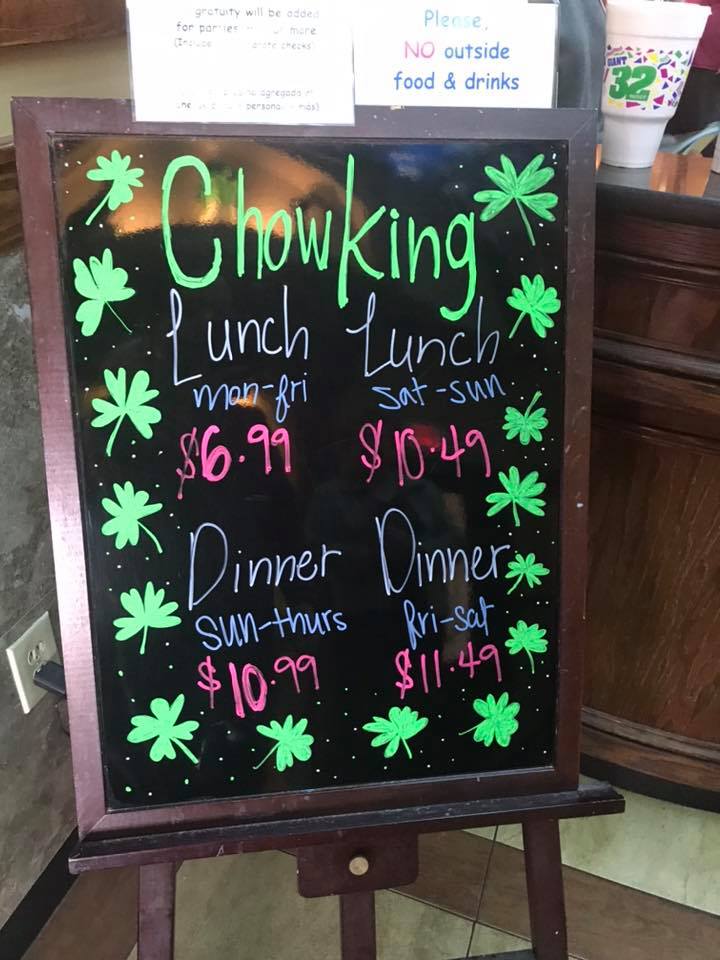 gratuity will be added
for parties more
checks)
agregada
Please,
NO outside
food & drinks
GIANT
32
Chowking
Lunch
mon-fri
$6.99
Lunch
sat-sun
$10.49
Dinner
sun-thurs
$10.99
Dinner
fri-sat
$11.49